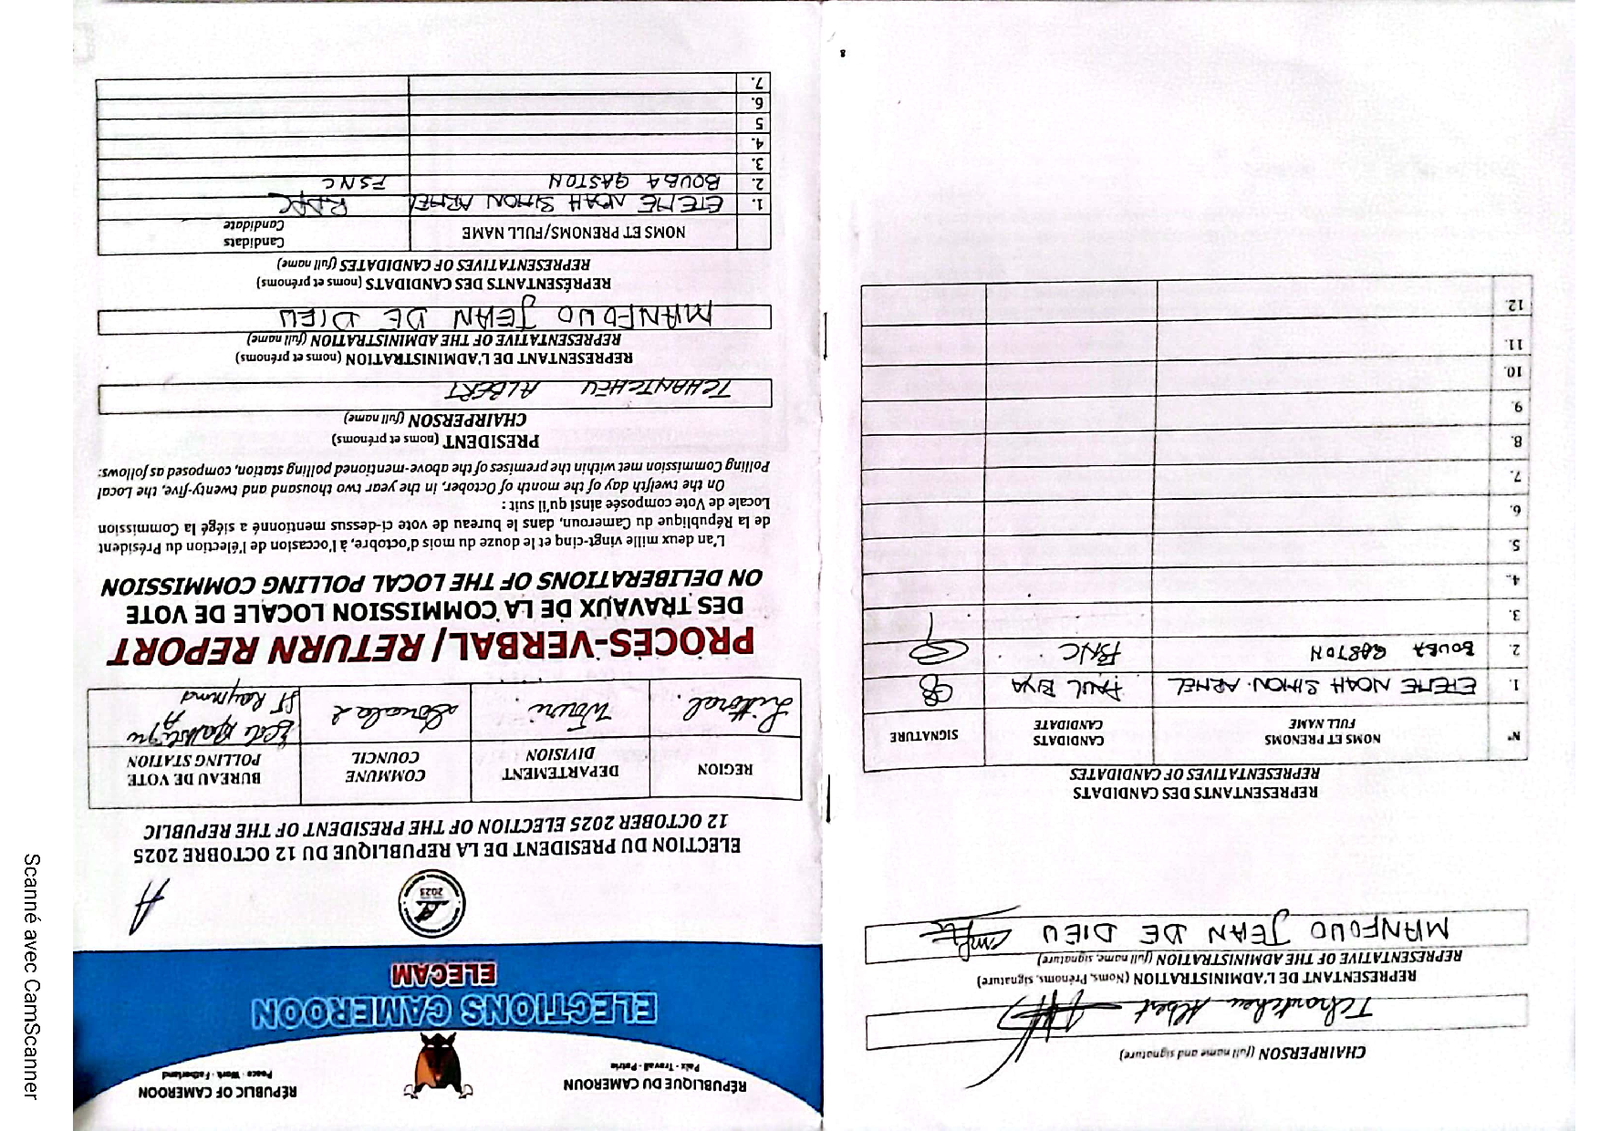 RÉPUBLIQUE DU CAMEROUN
Paix - Travail - Patrie
REPUBLIC OF CAMEROON
Peace - Work - Fatherland
ELECTIONS CAMEROON
ELECAM
2025
ELECTION DU PRESIDENT DE LA REPUBLIQUE DU 12 OCTOBRE 2025
12 OCTOBER 2025 ELECTION OF THE PRESIDENT OF THE REPUBLIC
REGION
DEPARTEMENT
DIVISION
COMMUNE
COUNCIL
BUREAU DE VOTE
POLLING STATION
Littoral.
Wouri.
Douala 2
St Raymond
PROCÈS-VERBAL/ RETURN REPORT
DES TRAVAUX DE LA COMMISSION LOCALE DE VOTE
ON DELIBERATIONS OF THE LOCAL POLLING COMMISSION
L'an deux mille vingt-cinq et le douze du mois d'octobre, à l'occasion de l'élection du Président
de la République du Cameroun, dans le bureau de vote ci-dessus mentionné a siégé la Commission
Locale de Vote composée ainsi qu'il suit :
On the twelfth day of the month of October, in the year two thousand and twenty-five, the Local
Polling Commission met within the premises of the above-mentioned polling station, composed as follows:
PRESIDENT (noms et prénoms)
CHAIRPERSON (full name)
TCHANTCHEU ALBERT
REPRESENTANT DE L'ADMINISTRATION (noms et prénoms)
REPRESENTATIVE OF THE ADMINISTRATION (full name)
MANFOUO JEAN DE DIEU
REPRÉSENTANTS DES CANDIDATS (noms et prénoms)
REPRESENTATIVES OF CANDIDATES (full name)
NOMS ET PRENOMS/FULL NAME
Candidats
Candidate
1. ETEME NOAH SIMON ARMEL RDPC
2. BOUBA GASTON FSNC
3.
4.
5
6.
7.
8
CHAIRPERSON (full name and signature)
Tchantcheu Albert
REPRESENTANT DE L'ADMINISTRATION (Noms, Prénoms, signature)
REPRESENTATIVE OF THE ADMINISTRATION (full name, signature)
MANFOUO JEAN DE DIEU
REPRESENTANTS DES CANDIDATS
REPRESENTATIVES OF CANDIDATES
N°
NOMS ET PRENOMS
FULL NAME
CANDIDATS
CANDIDATE
SIGNATURE
1. ETEME NOAH SIMON ARMEL PAUL BIYA
2. BOUBA GASTON FSNC
3.
4.
5.
6.
7.
8.
9.
10.
11.
12.
Scanné avec CamScanner